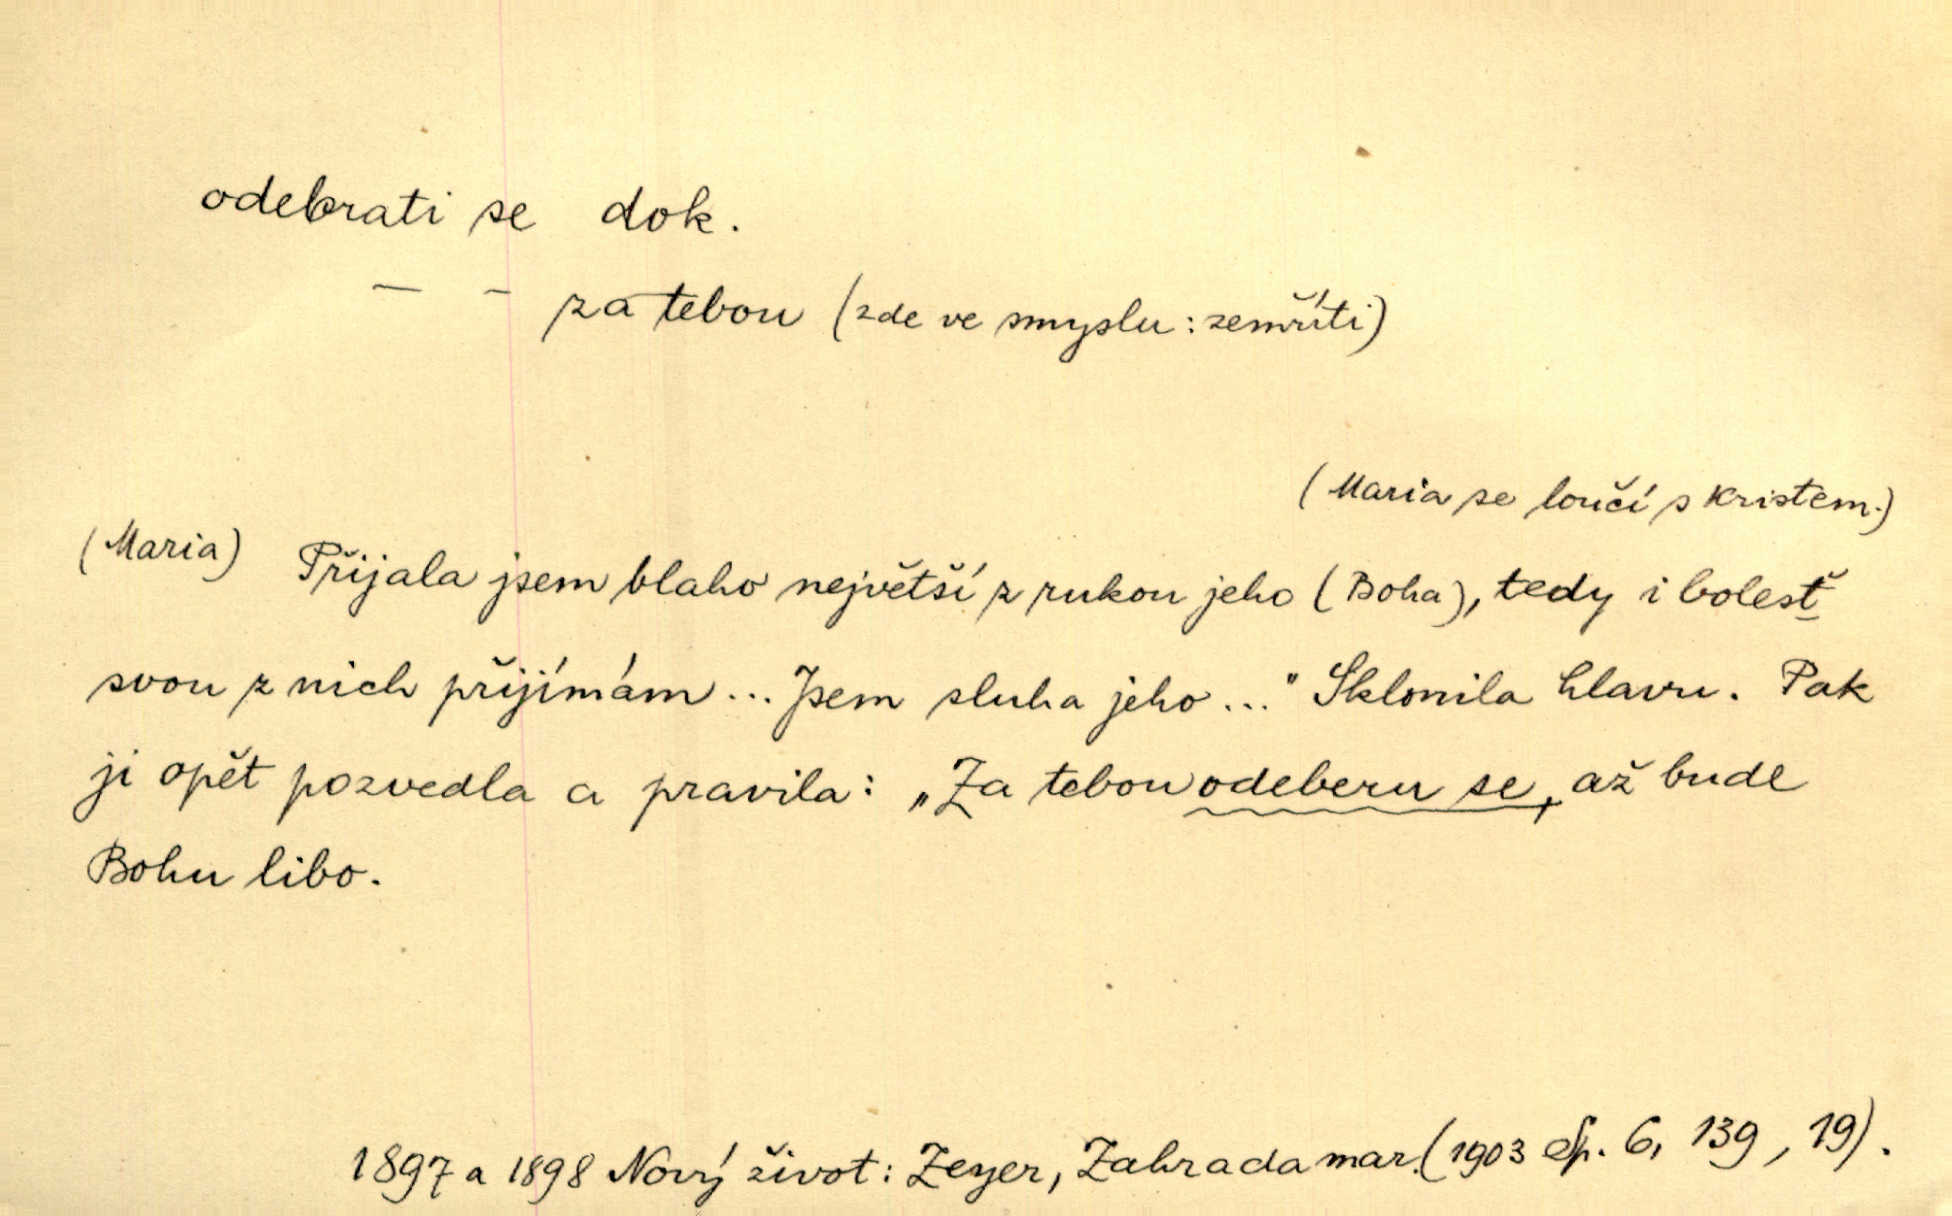 odebrati se dok.
— — za tebou (zde ve smyslu: zemříti)
(Maria se loučí s Kristem.)
(Maria) Přijala jsem blaho největší z rukou jeho (Boha), tedy i bolesť
svou z nich přijímám... Jsem sluha jeho..." Sklonila hlavu. Pak
ji opět pozvedla a pravila: „Za tebou odeberu se, až bude
Bohu libo.
1897 a 1898 Nový život: Zeyer, Zahrada mar. (1903 Sp. 6, 139, 19).